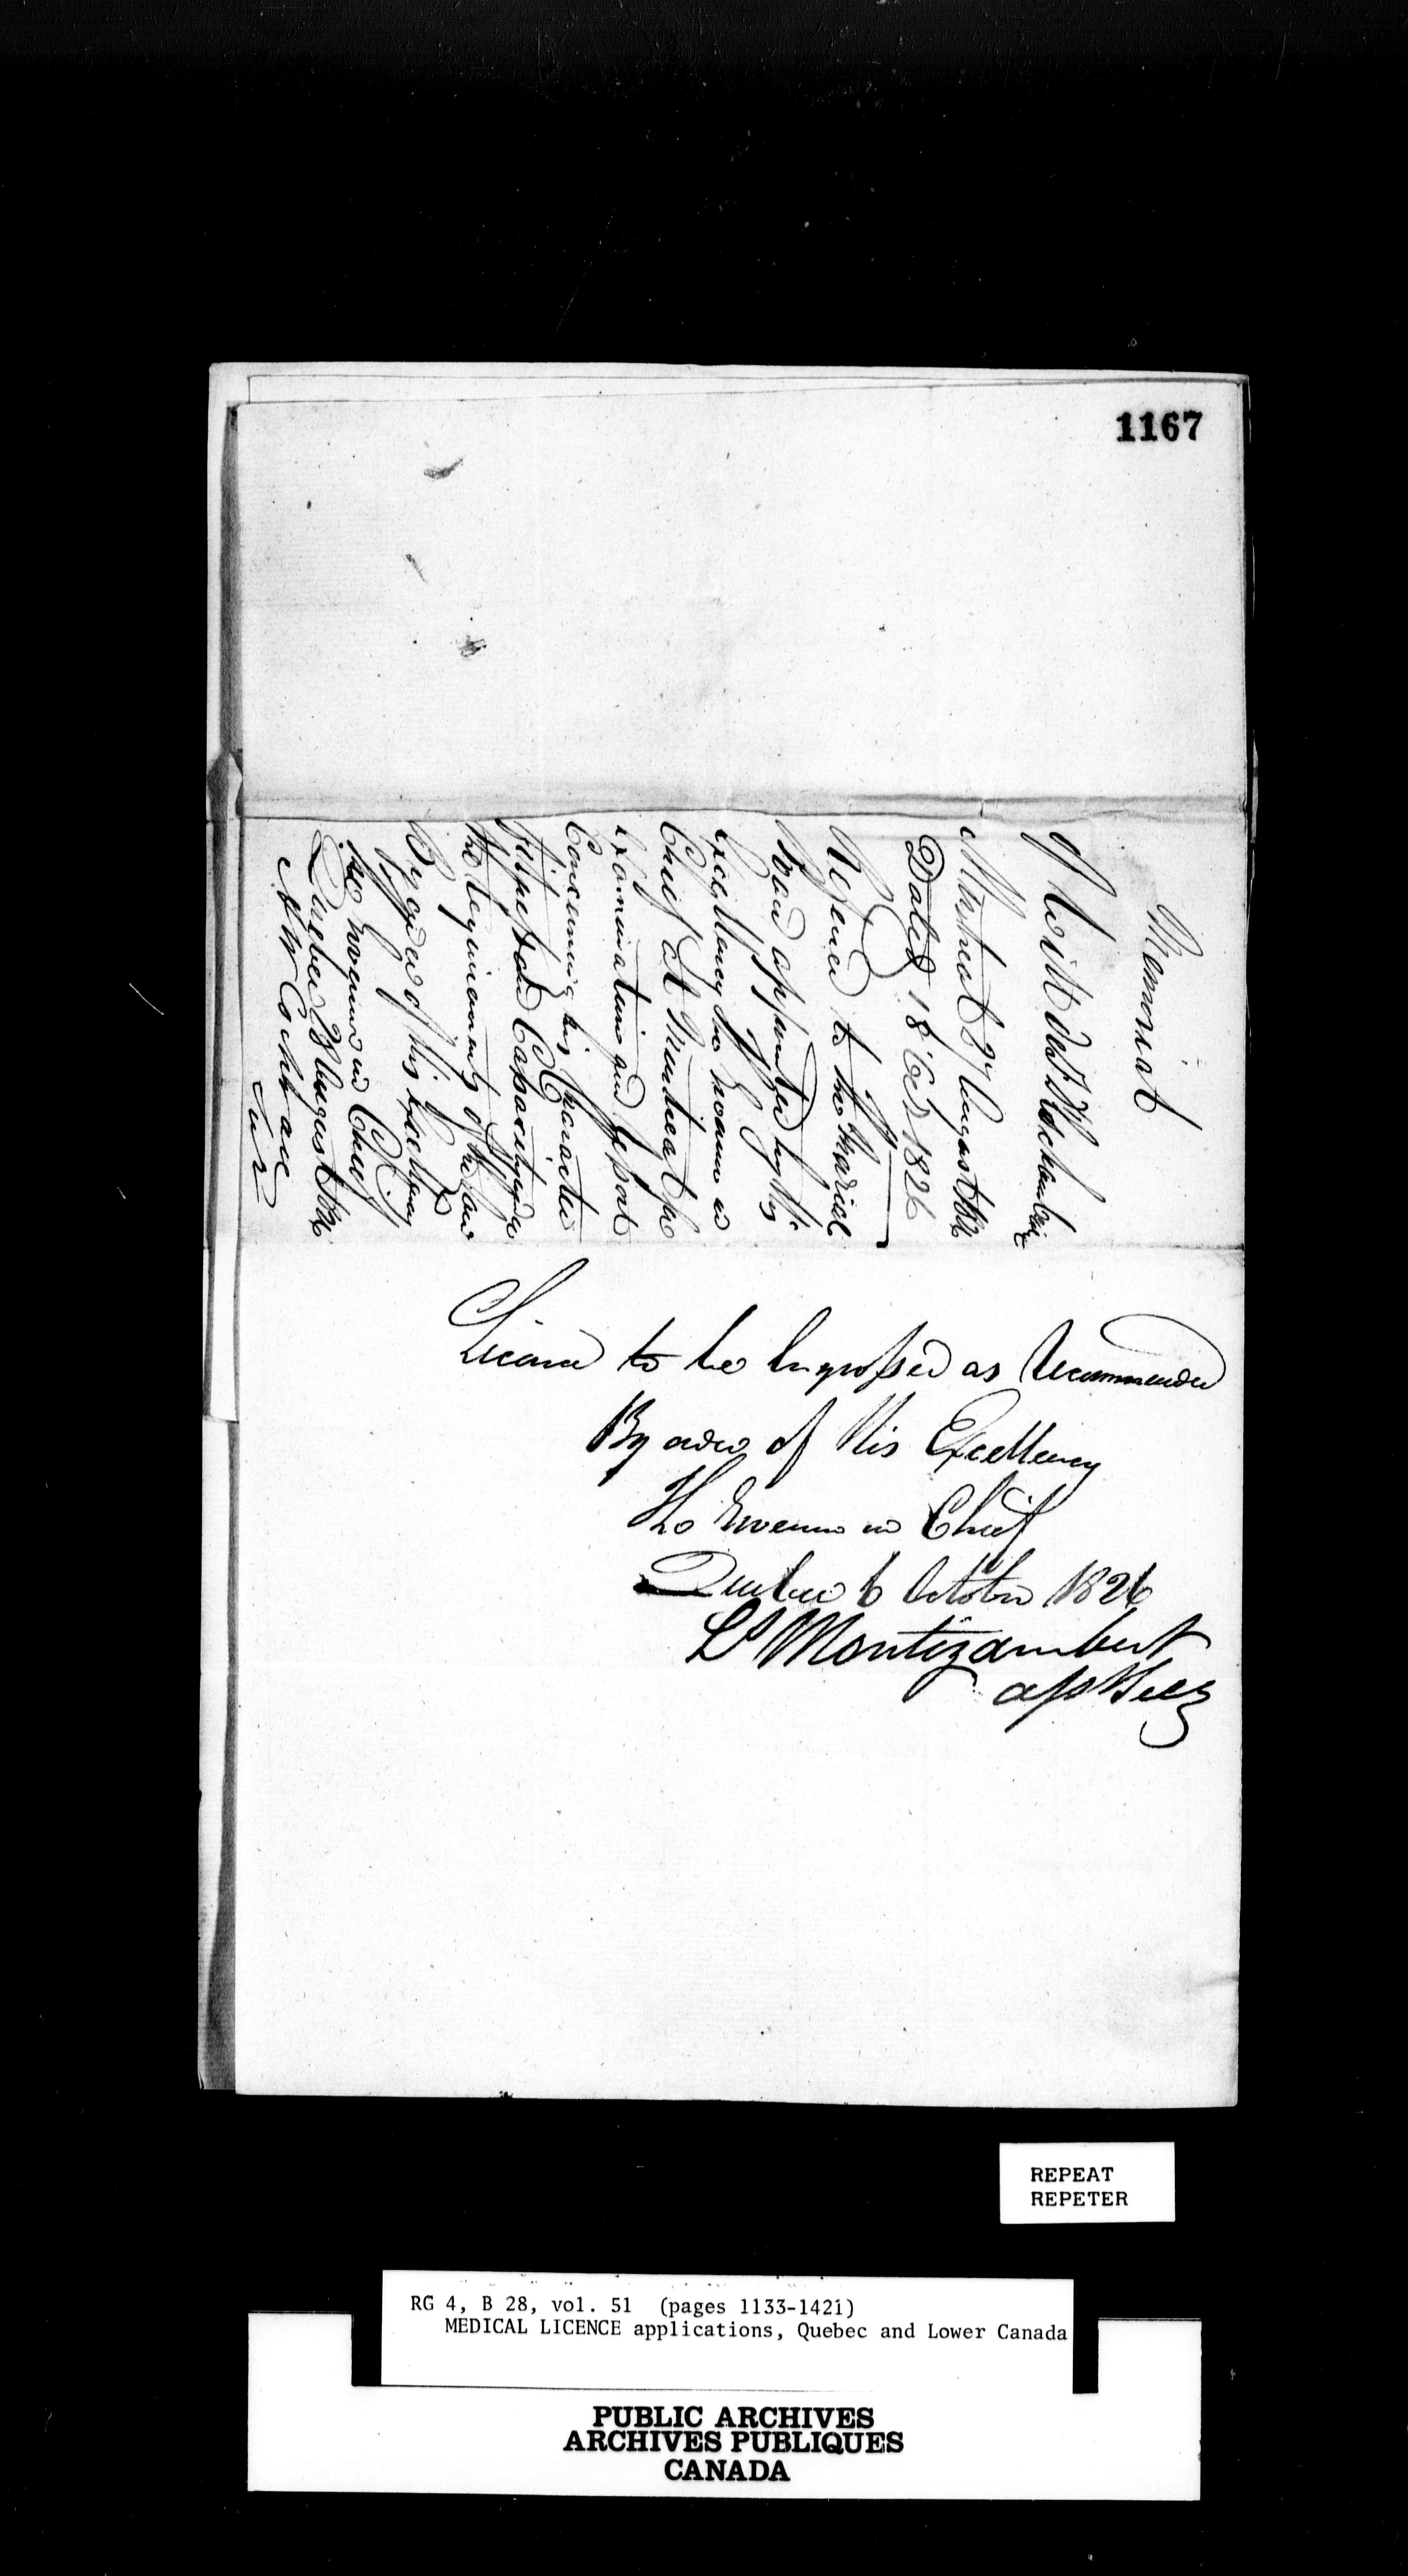 1167
Memorial
of
Montreal 27 August 1826
Dated 18 Oct 1826
Referred to the Medical
Board appointed by His
Excellency the Governor in
Chief at Montreal for
Examination and Report
Concerning his Character
Fitness and Capacity under
the requirements of the Law
By order of His Excellency
the Governor in Chief
Quebec 28 August 1826
A W Cochrane
Licence to be Engrossed as Recommended
By order of His Excellency
The Governor in Chief
Quebec 6 October 1826
Ls Montizambert
ass Secy
REPEAT
REPETER
RG 4, B 28, vol. 51 (pages 1133-1421)
MEDICAL LICENCE applications, Quebec and Lower Canada
PUBLIC ARCHIVES
ARCHIVES PUBLIQUES
CANADA